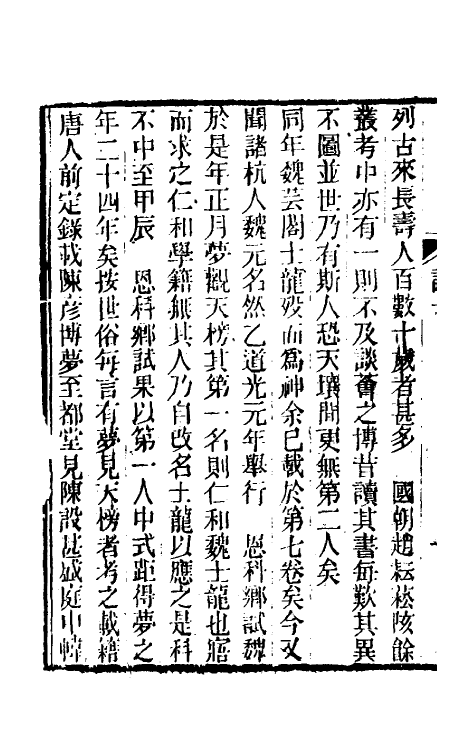 列古來長壽人百數十歲者甚多　國朝趙耘菘陔餘
叢考中亦有一則不及談薈之博昔讀其書每歎其異
不圖並世乃有斯人恐天壤間更無第二人矣
同年魏芸閣士龍歿而爲神余已載於第七卷矣今又
聞諸杭人魏元名然乙道光元年舉行　恩科鄉試魏
於是年正月夢觀天榜其第一名則仁和魏士龍也寤
而求之仁和學籍無其人乃自改名士龍以應之是科
不中至甲辰　恩科鄉試果以第一人中式距得夢之
年二十四年矣按世俗每言有夢見天榜者考之載籍
唐人前定錄載陳彥博夢至都堂見陳設甚盛庭中幃